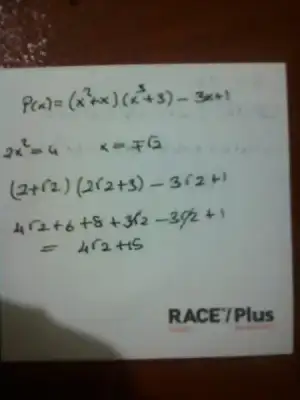 P(x) = (x²+x) (x³+3) - 3x+1
2x² = 4 x = ∓√2
(2+√2) (2√2+3) - 3√2+1
4√2+6+8+3√2-3√2+1
= 4√2+15
RACE™/Plus